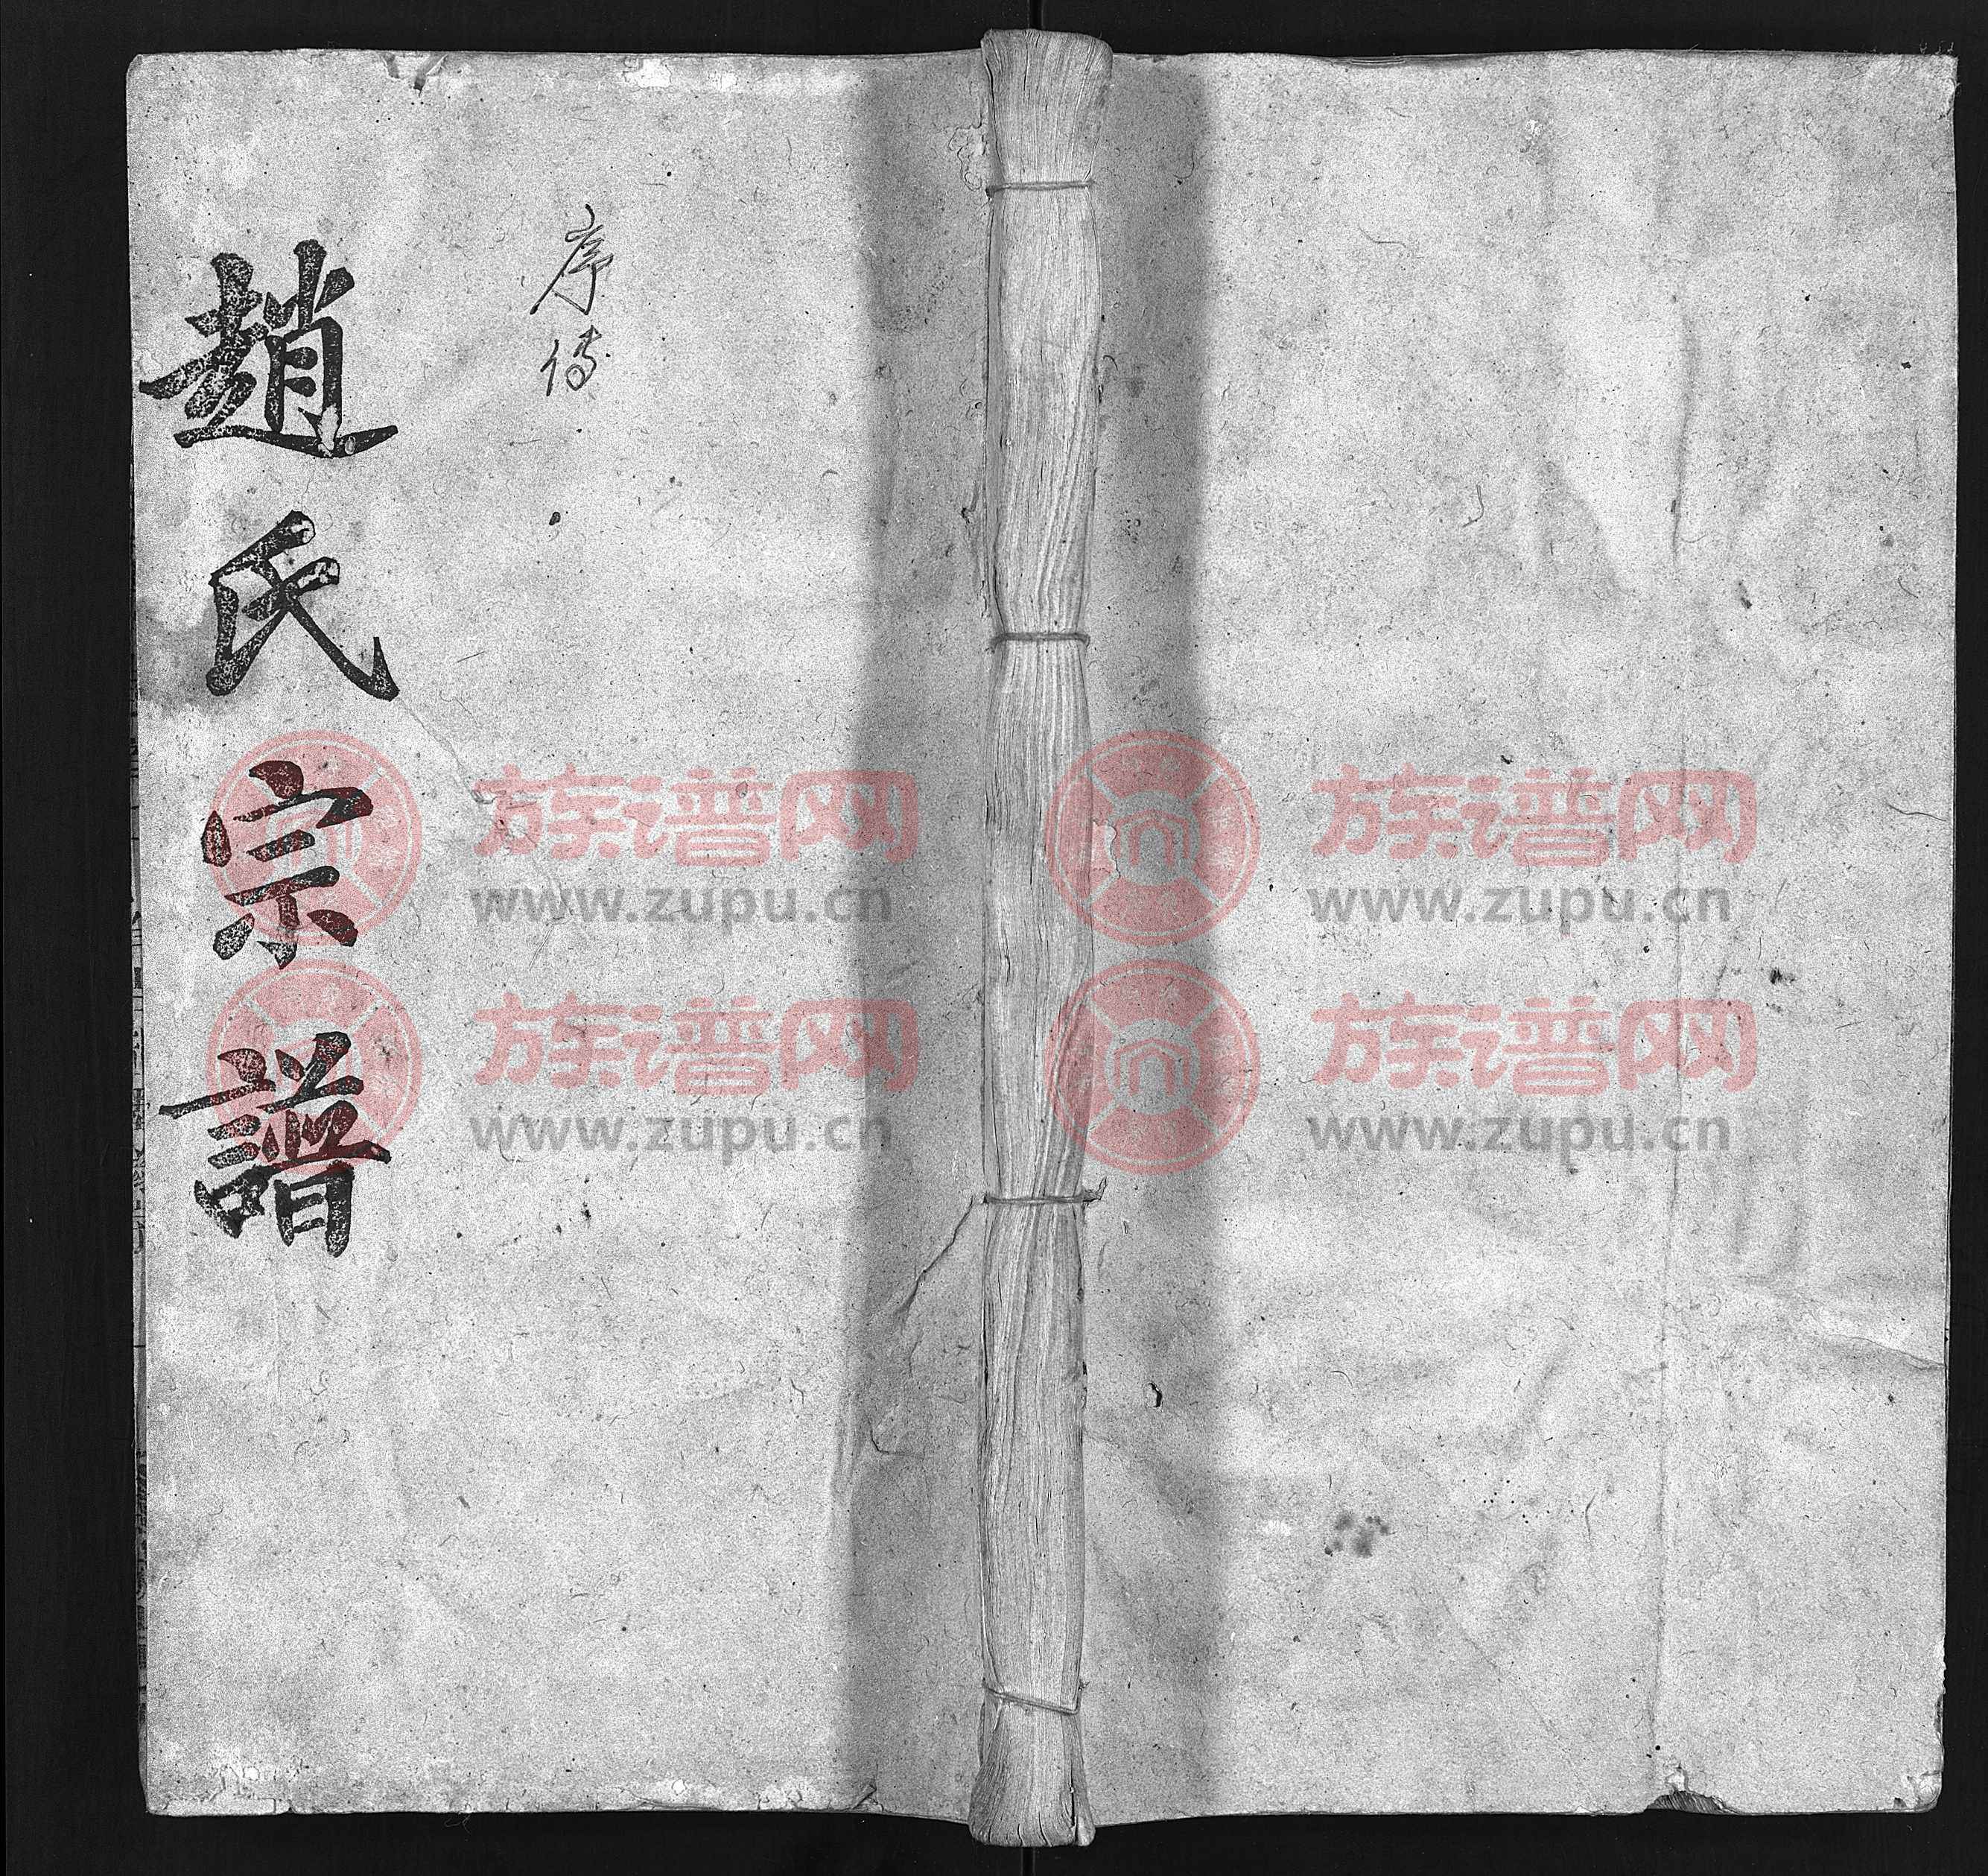 序傳
趙氏宗譜
族谱网
www.zupu.cn
族谱网
www.zupu.cn
族谱网
www.zupu.cn
族谱网
www.zupu.cn